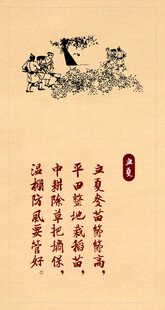 立夏
立夏麦苗节节高，
平田整地栽稻苗，
中耕除草把墒保，
温棚防风要管好。